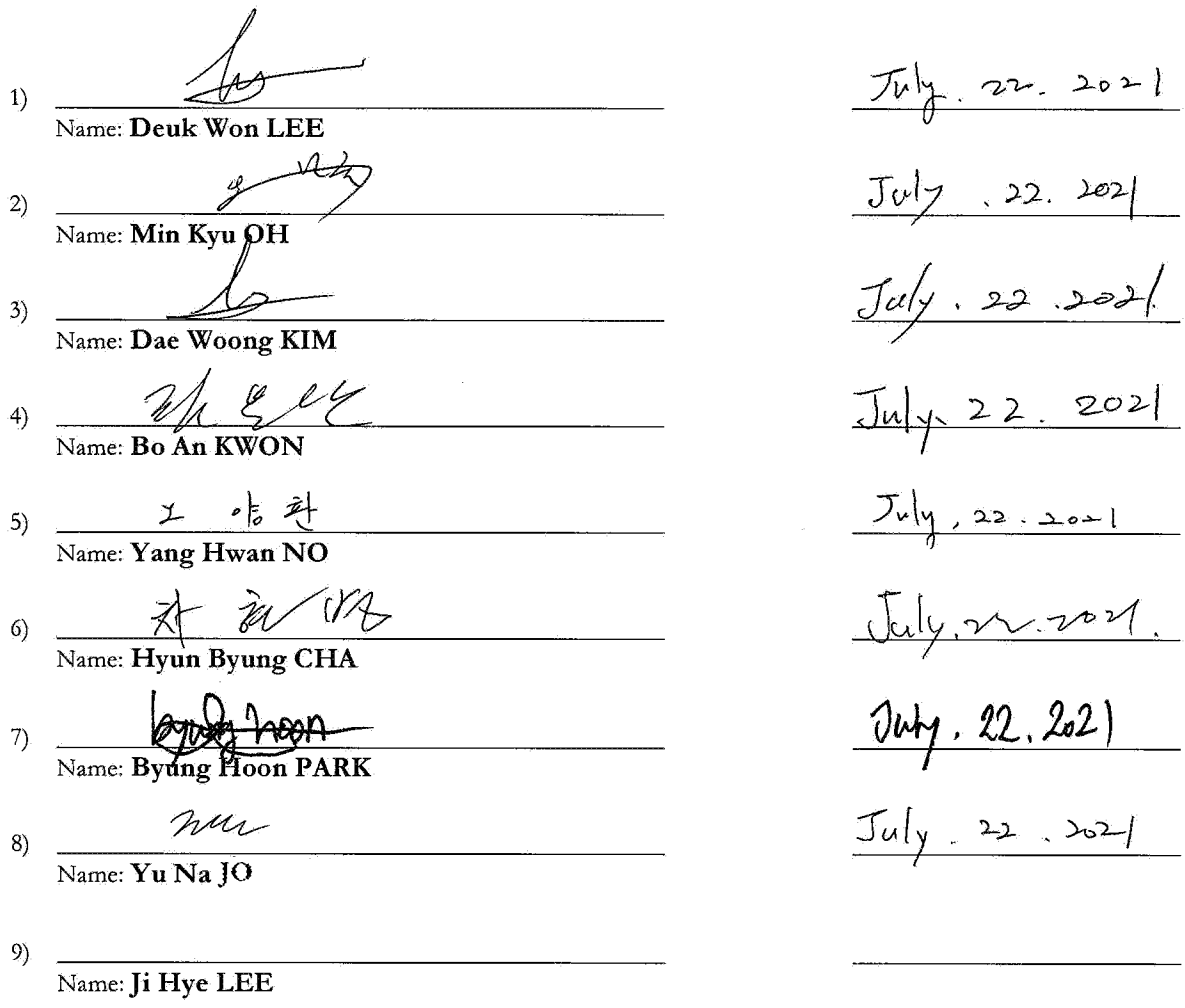 1) July. 22. 2021
Name: Deuk Won LEE
2) July . 22. 2021
Name: Min Kyu OH
3) July . 22 . 2021.
Name: Dae Woong KIM
4) 권 보 안 July. 22. 2021
Name: Bo An KWON
5) 노 양 환 July, 22. 2021
Name: Yang Hwan NO
6) 차 현 병 July. 22. 2021.
Name: Hyun Byung CHA
7) byung hoon July. 22. 2021
Name: Byung Hoon PARK
8) July . 22 . 2021
Name: Yu Na JO
9)
Name: Ji Hye LEE